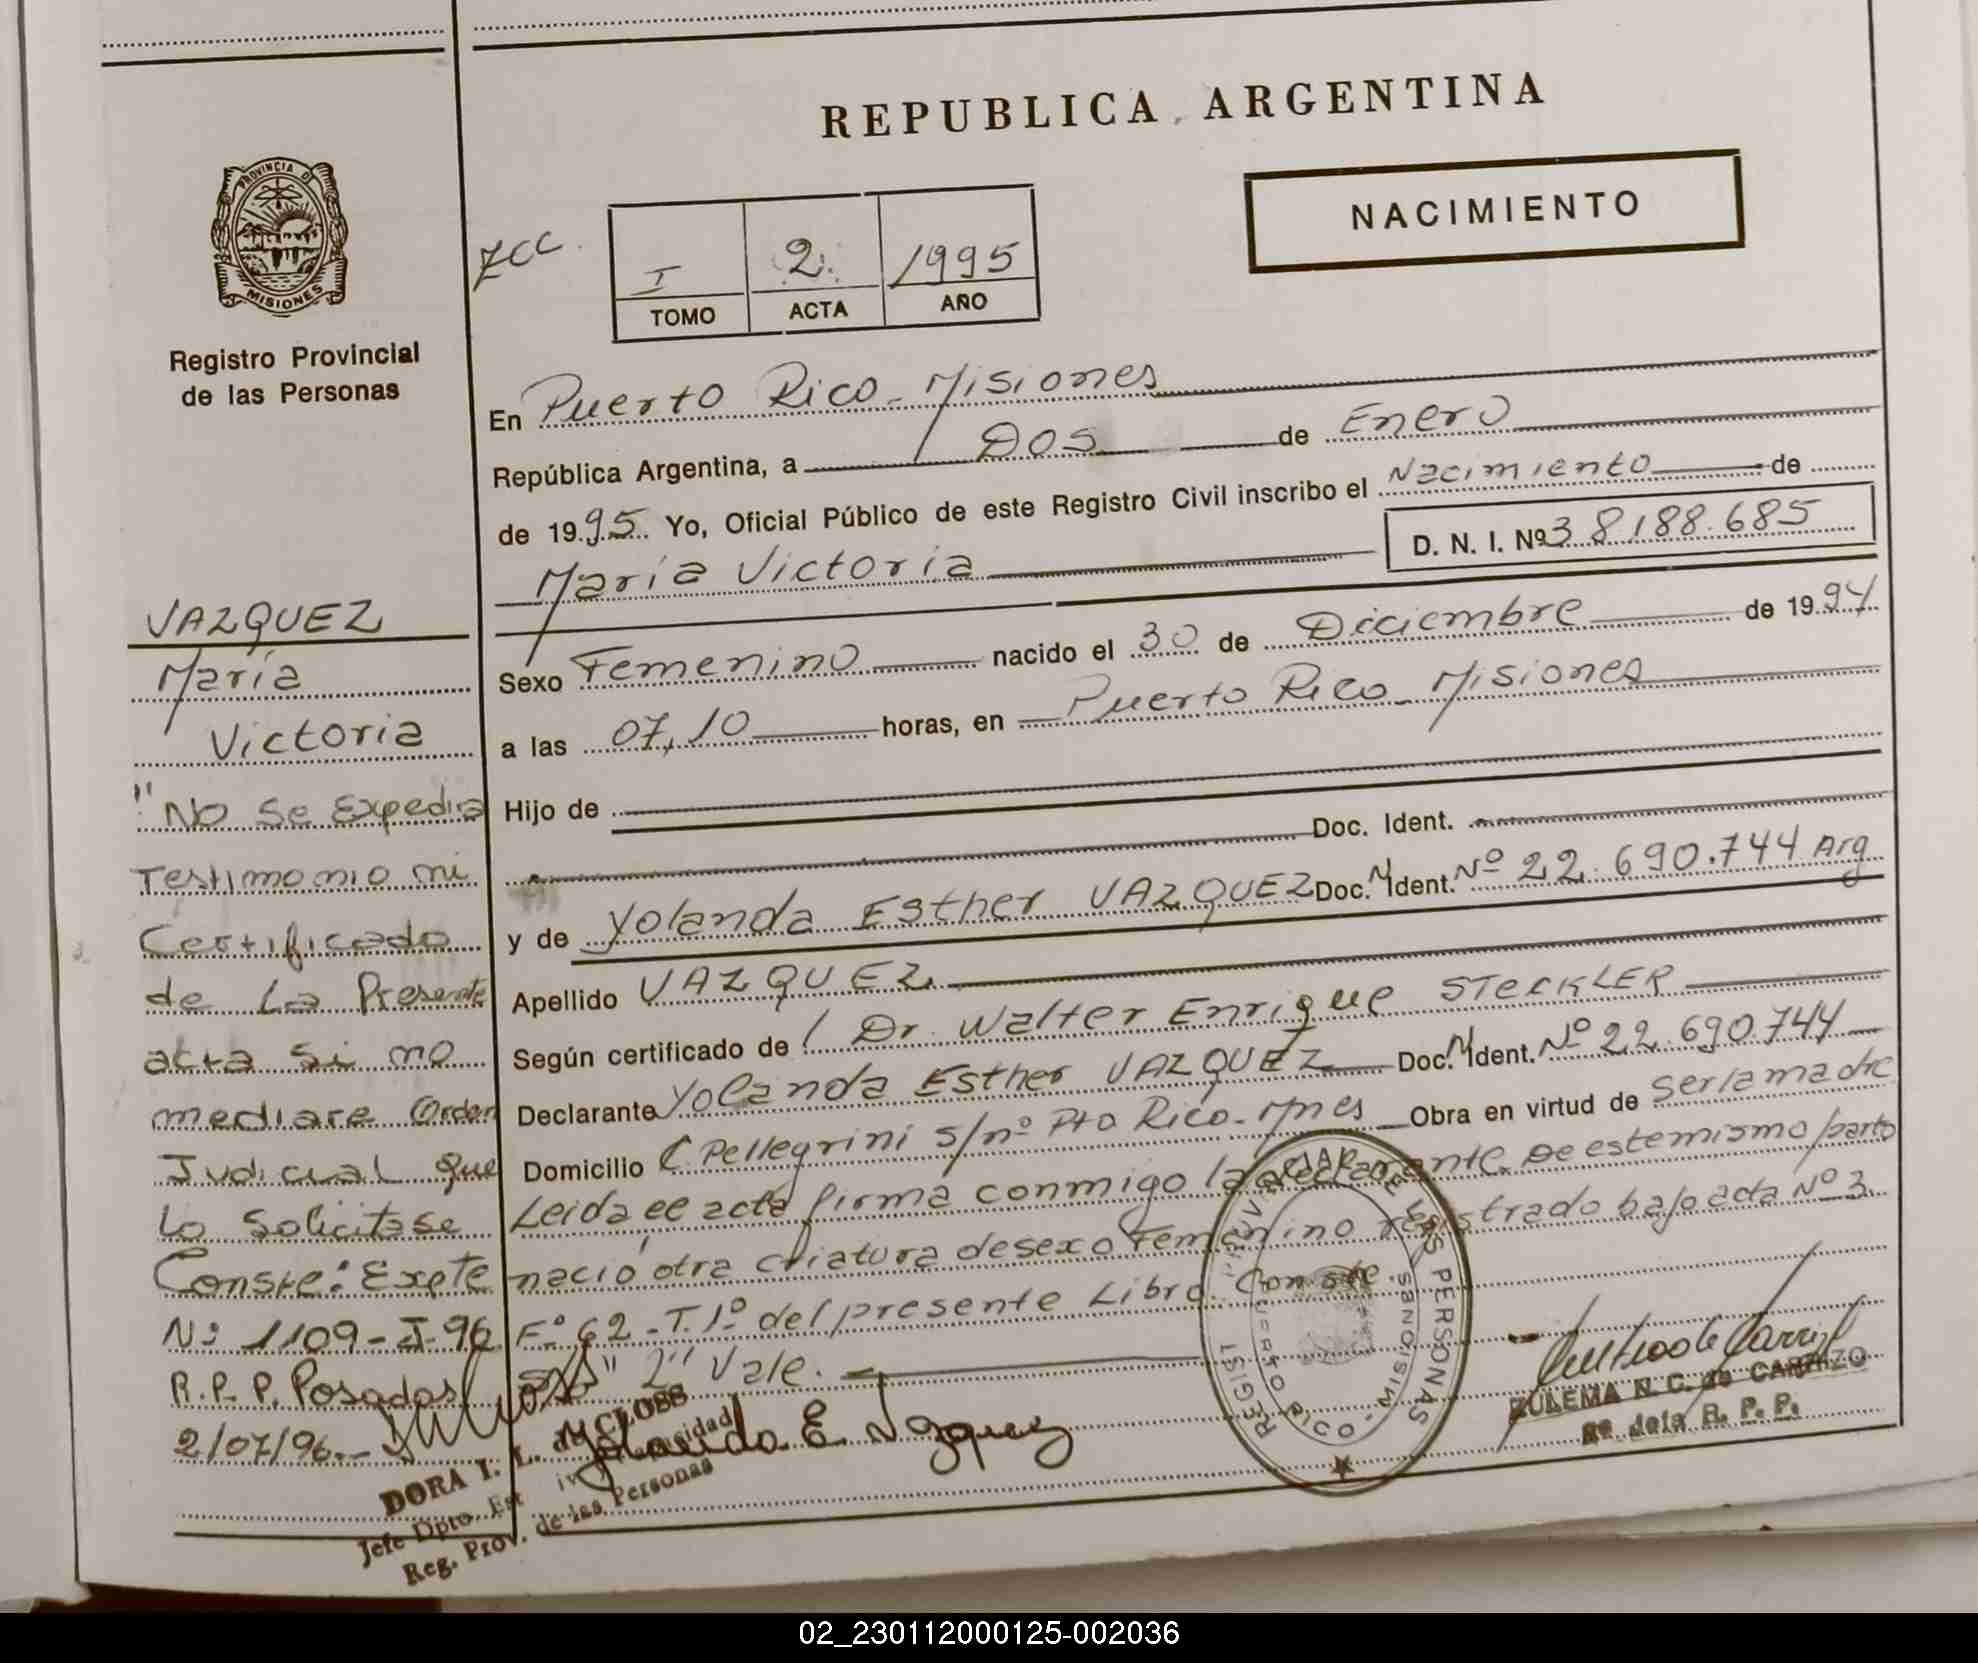 REPUBLICA ARGENTINA
PROVINCIA DE
MISIONES
Registro Provincial
de las Personas
NACIMIENTO
ZCC.
I 2 1995
TOMO ACTA AÑO
En Puerto Rico - Misiones
República Argentina, a Dos de Enero
de 1995. Yo, Oficial Público de este Registro Civil inscribo el Nacimiento de
María Victoria D. N. I. Nº 38188.685
Sexo Femenino nacido el 30 de Diciembre de 1994
a las 07,10 horas, en Puerto Rico - Misiones
Hijo de
Doc. Ident.
y de Yolanda Esther VAZQUEZ Doc. N Ident. Nº 22.690.744 Arg
Apellido VAZQUEZ
Según certificado de Dr. Walter Enrique STECKLER
Declarante Yolanda Esther VAZQUEZ Doc. N Ident. Nº 22.690.744
Domicilio C Pellegrini s/nº Pto Rico - Mnes Obra en virtud de ser la madre
Leida el acta firma conmigo la declarante. De este mismo parto
nació otra criatura de sexo Femenino registrado bajo acta Nº 3
Fº 62 - T. 1º del presente Libro. Conste.
"2" Vale.
VAZQUEZ
María
Victoria
"No se Expedira
Testimonio ni
Certificado
de La Presente
acta si no
mediare Orden
Judicial que
lo solicitase
Conste: Expte
Nº 1109-I-96
R.P.P. Posadas
2/07/96.-
Yolanda E. Vazquez
DORA I. L. de CLOSS
Jefe Dpto. Est
Reg. Prov. de las Personas
REGIST DE LAS PERSONAS
MISIONES
ZULEMA N. C. de CARRIZO
Jefa R. P. P.
02_230112000125-002036